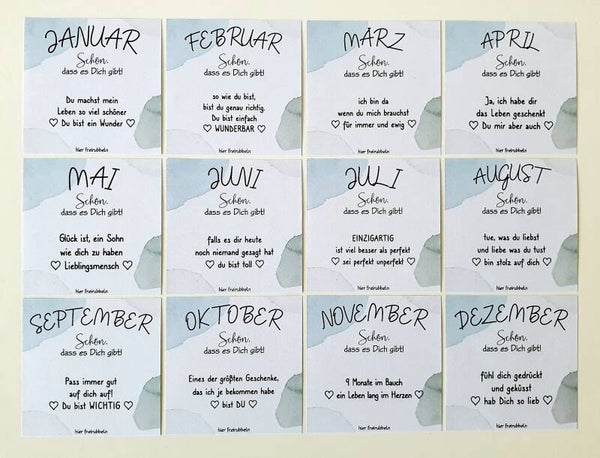 JANUAR
Schön,
dass es Dich gibt!
Du machst mein
Leben so viel schöner
♡ Du bist ein Wunder ♡
hier freirubbeln
FEBRUAR
Schön,
dass es Dich gibt!
so wie du bist,
bist du genau richtig.
Du bist einfach
♡ WUNDERBAR ♡
hier freirubbeln
MÄRZ
Schön,
dass es Dich gibt!
ich bin da
wenn du mich brauchst
♡ für immer und ewig ♡
hier freirubbeln
APRIL
Schön,
dass es Dich gibt!
Ja, ich habe dir
das Leben geschenkt
♡ Du mir aber auch ♡
hier freirubbeln
MAI
Schön,
dass es Dich gibt!
Glück ist, ein Sohn
wie dich zu haben
♡ Lieblingsmensch ♡
hier freirubbeln
JUNI
Schön,
dass es Dich gibt!
falls es dir heute
noch niemand gesagt hat
♡ du bist toll ♡
hier freirubbeln
JULI
Schön,
dass es Dich gibt!
EINZIGARTIG
ist viel besser als perfekt
♡ sei perfekt unperfekt ♡
hier freirubbeln
AUGUST
Schön,
dass es Dich gibt!
tue, was du liebst
und liebe was du tust
♡ bin stolz auf dich ♡
hier freirubbeln
SEPTEMBER
Schön,
dass es Dich gibt!
Pass immer gut
auf dich auf!
♡ Du bist WICHTIG ♡
hier freirubbeln
OKTOBER
Schön,
dass es Dich gibt!
Eines der größten Geschenke,
das ich je bekommen habe
♡ bist DU ♡
hier freirubbeln
NOVEMBER
Schön,
dass es Dich gibt!
9 Monate im Bauch
♡ ein Leben lang im Herzen ♡
hier freirubbeln
DEZEMBER
Schön,
dass es Dich gibt!
fühl dich gedrückt
und geküsst
♡ hab Dich so lieb ♡
hier freirubbeln